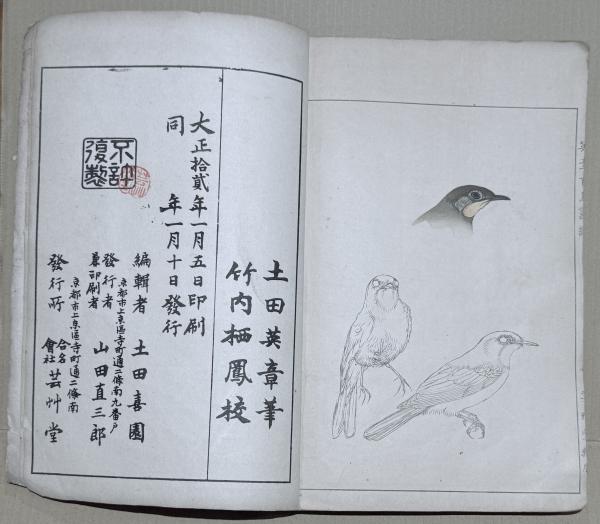 土田英章筆
竹内栖鳳校
大正拾貳年一月五日印刷
同年一月十日發行
編輯者 土田喜園
京都市上京區寺町通二條南九番戸
發行者
兼印刷者 山田直三郎
京都市上京區寺町通二條南
發行所 合名會社 芸艸堂
不許復製